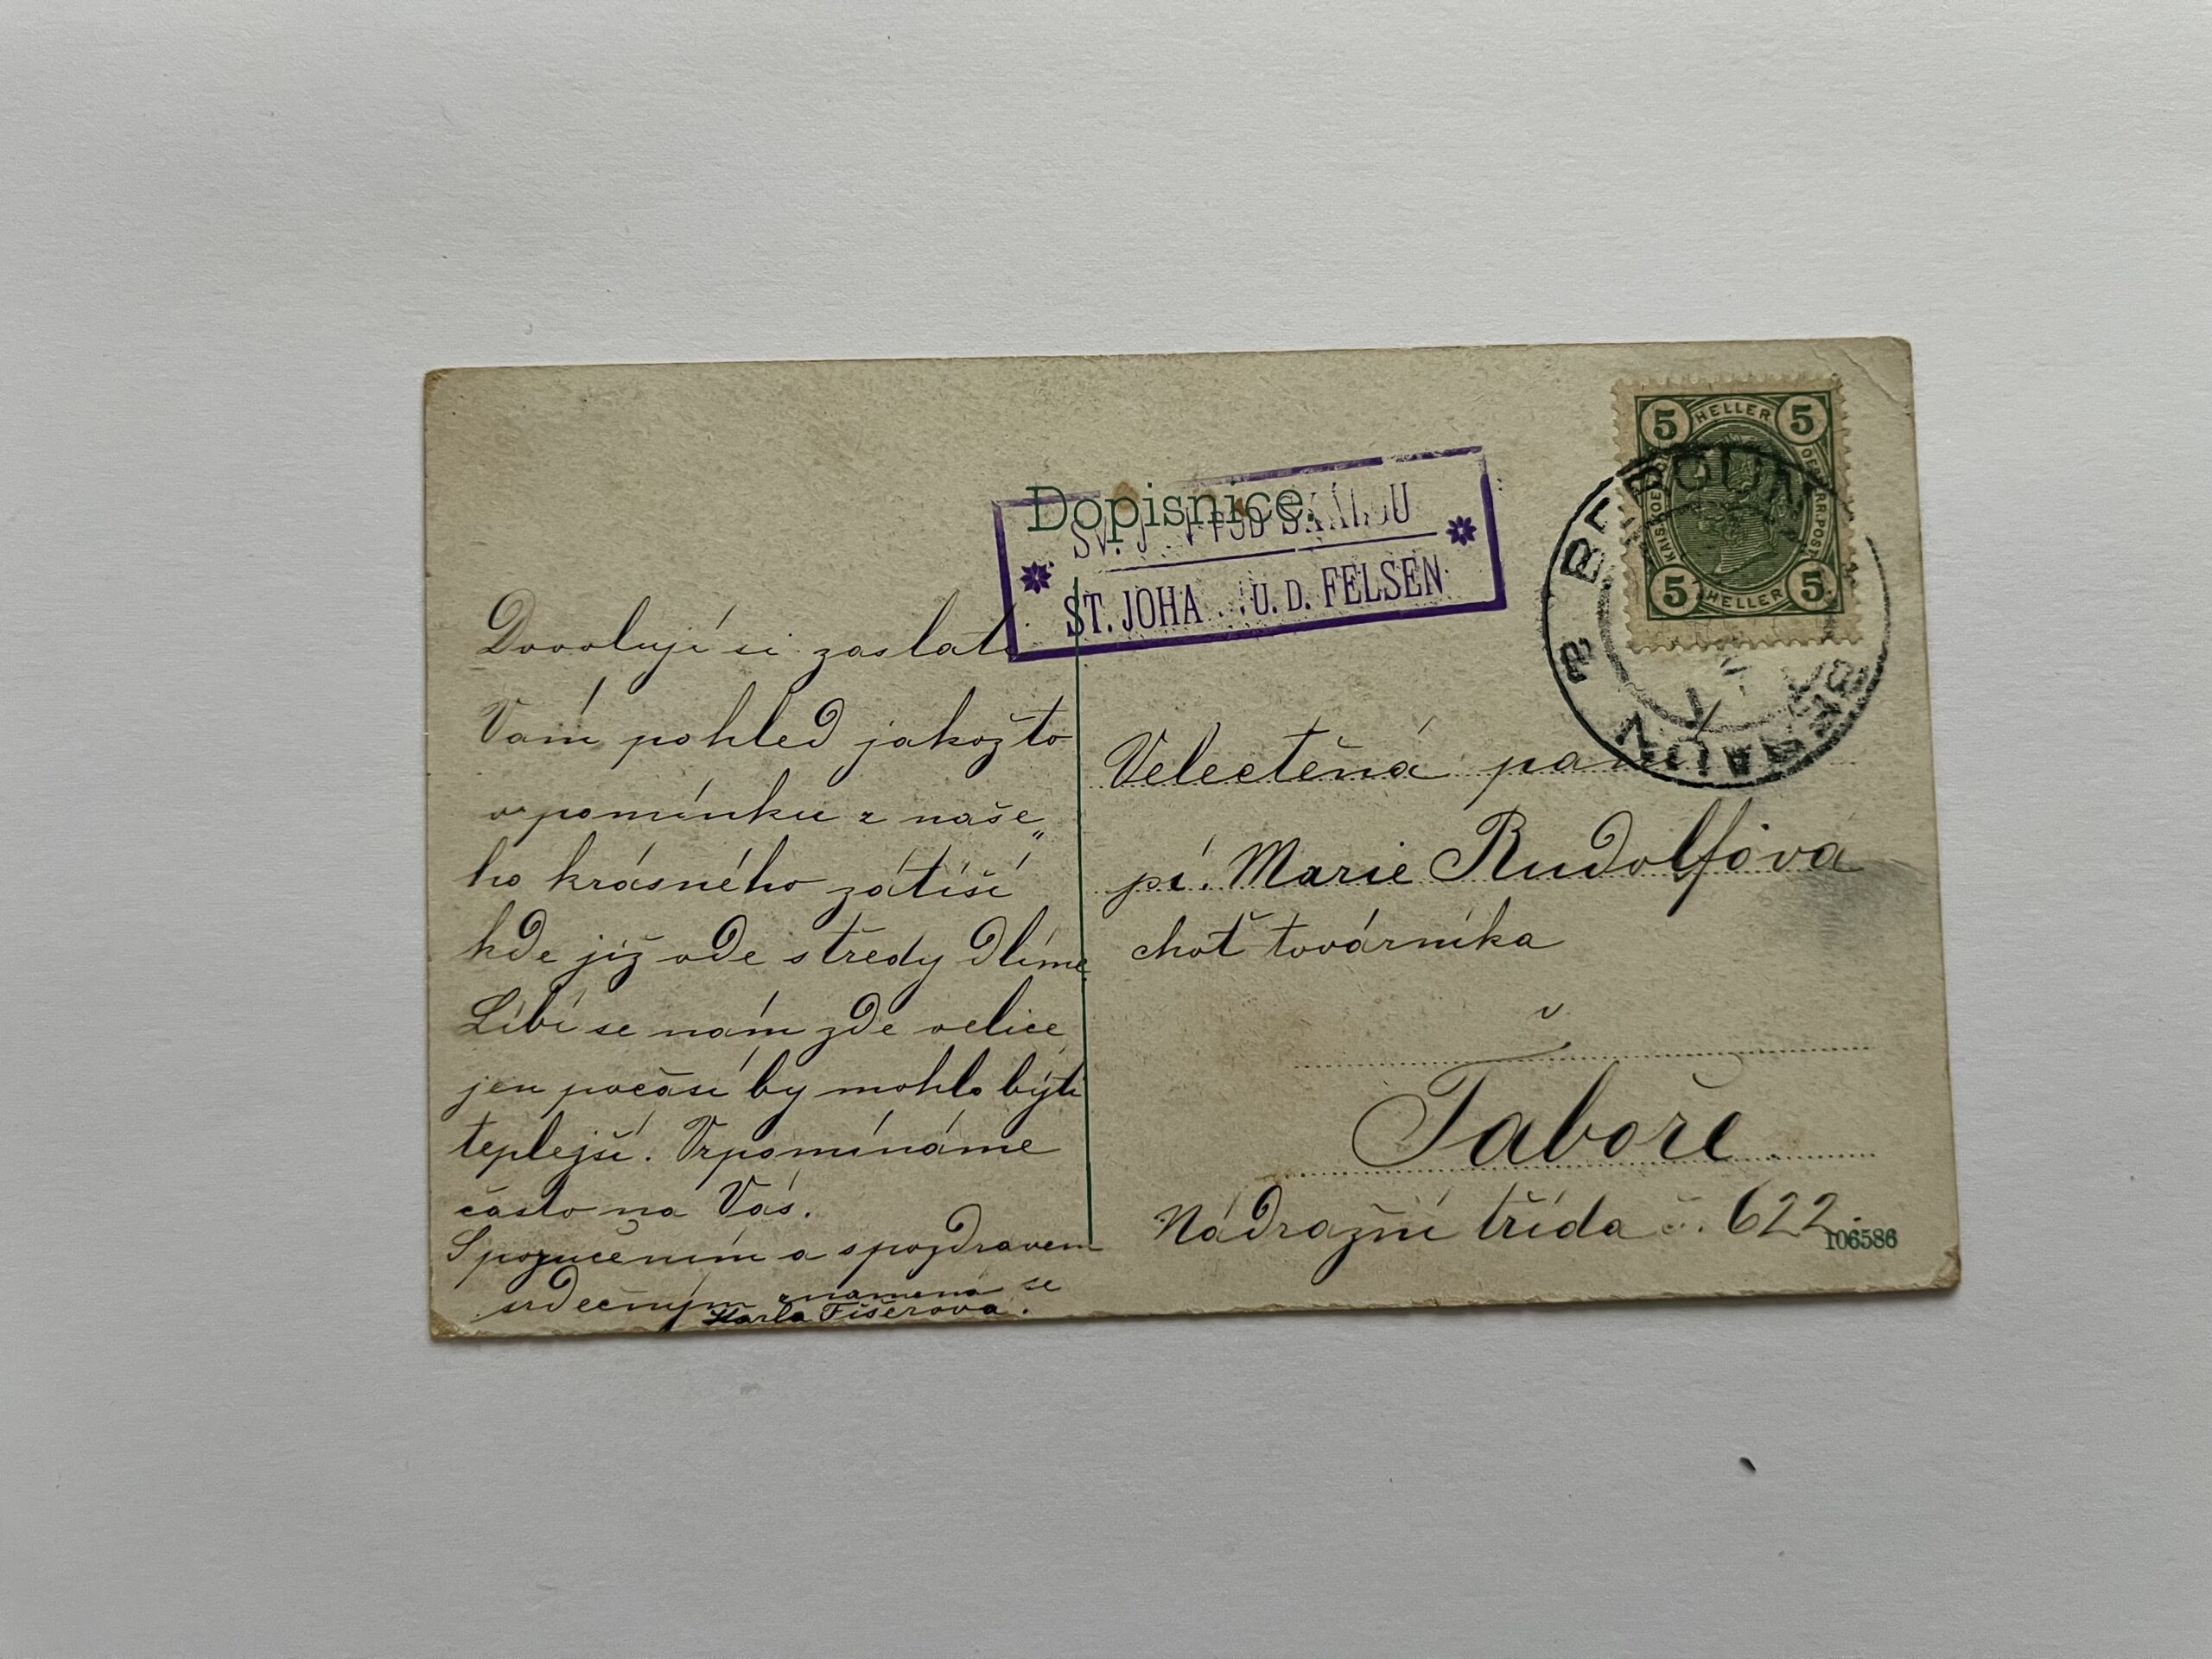 Dopisnice.
SV. J POD SKALOU
ST. JOHA U. D. FELSEN
5 HELLER 5
5 HELLER 5
BEROUN
BERAUN 2
Dovoluji si zaslati
Vám pohled jakožto
vzpomínku z naše„
ho krásného zátiší
kde již ode středy dlíme
Líbí se nám zde velice
jen počasí by mohlo býti
teplejší. Vzpomínáme
často na Vás.
S poručením a s pozdravem
srdečným znamená se
Karla Fišerova.
Velectěná paní
pí. Marie Rudolfová
choť továrníka
v
Taboře.
Nádražní třída č. 622.
106586